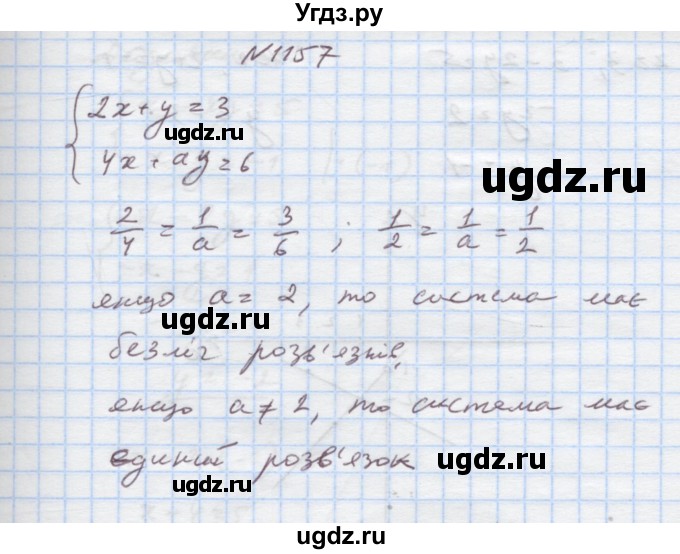 Угдз.ру
N1157
{ 2x + y = 3
ugdz.ru
4x + ay = 6
ugdz.ru
2/4 = 1/a = 3/6 ; 1/2 = 1/a = 1/2
ugdz.ru
якщо a = 2, то система має
ugdz.ru
безліч розв'язків,
ugdz.ru
якщо a ≠ 2, то система має
ugdz.ru
єдиний розв'язок
ugdz.ru
ugdz.ru
ugdz.ru